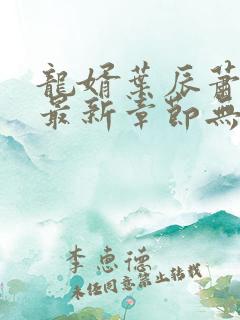 龍婿葉辰蕭
最新章節無
李惠德
未经同意禁止转载